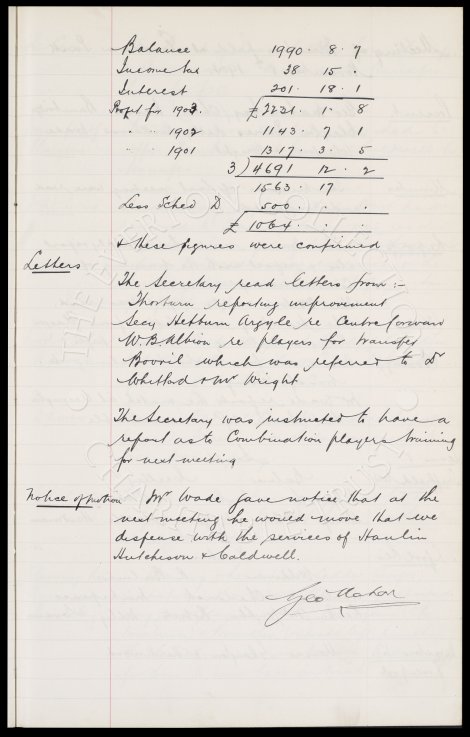 Balance 1990 . 8 . 7
Income tax 38 15 .
Interest 201 . 18 . 1
Profit for 1903. £ 2231 . 1 . 8
" " 1902 1143 . 7 . 1
" " 1901 1317 . 3 . 5
3) 4691 12 . 2
1563 . 17
Less Sched D 500 . . .
£ 1064 . . .
& these figures were confirmed
Letters
The Secretary read letters from :-
Thorburn reporting improvement
Secy Hebburn Argyle re Centre forward
W.B. Albion re players for transfer
Bovril which was referred to Dr
Whitford & Mr Wright.
The Secretary was instructed to have a
report as to Combination players training
for next meeting
Notice of motion Mr Wade gave notice that at the
next meeting he would move that we
dispense with the services of Hanlin
Hutchison & Caldwell.
Geo Mahon
THE EVERTON